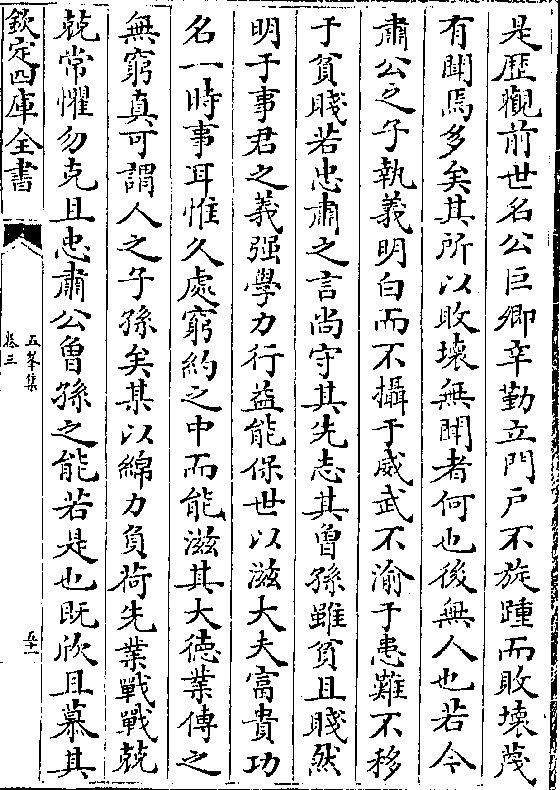 是歴觀前世名公巨卿辛勤立門戶不旋踵而敗壞蔑
有聞焉多矣其所以敗壞無聞者何也後無人也若今
肅公之子執義明白而不攝于威武不渝于患難不移
于貧賤若忠肅之言尚守其先志其曾孫雖貧且賤然
明于事君之義强學力行益能保世以滋大夫富貴功
名一時事耳惟久處窮約之中而能滋其大徳業傳之
無窮真可謂人之子孫矣某以綿力負荷先業戰戰兢
兢常懼勿克且忠肅公曾孫之能若是也既欣且慕其
欽定四庫全書
五峯集
卷三
五十一